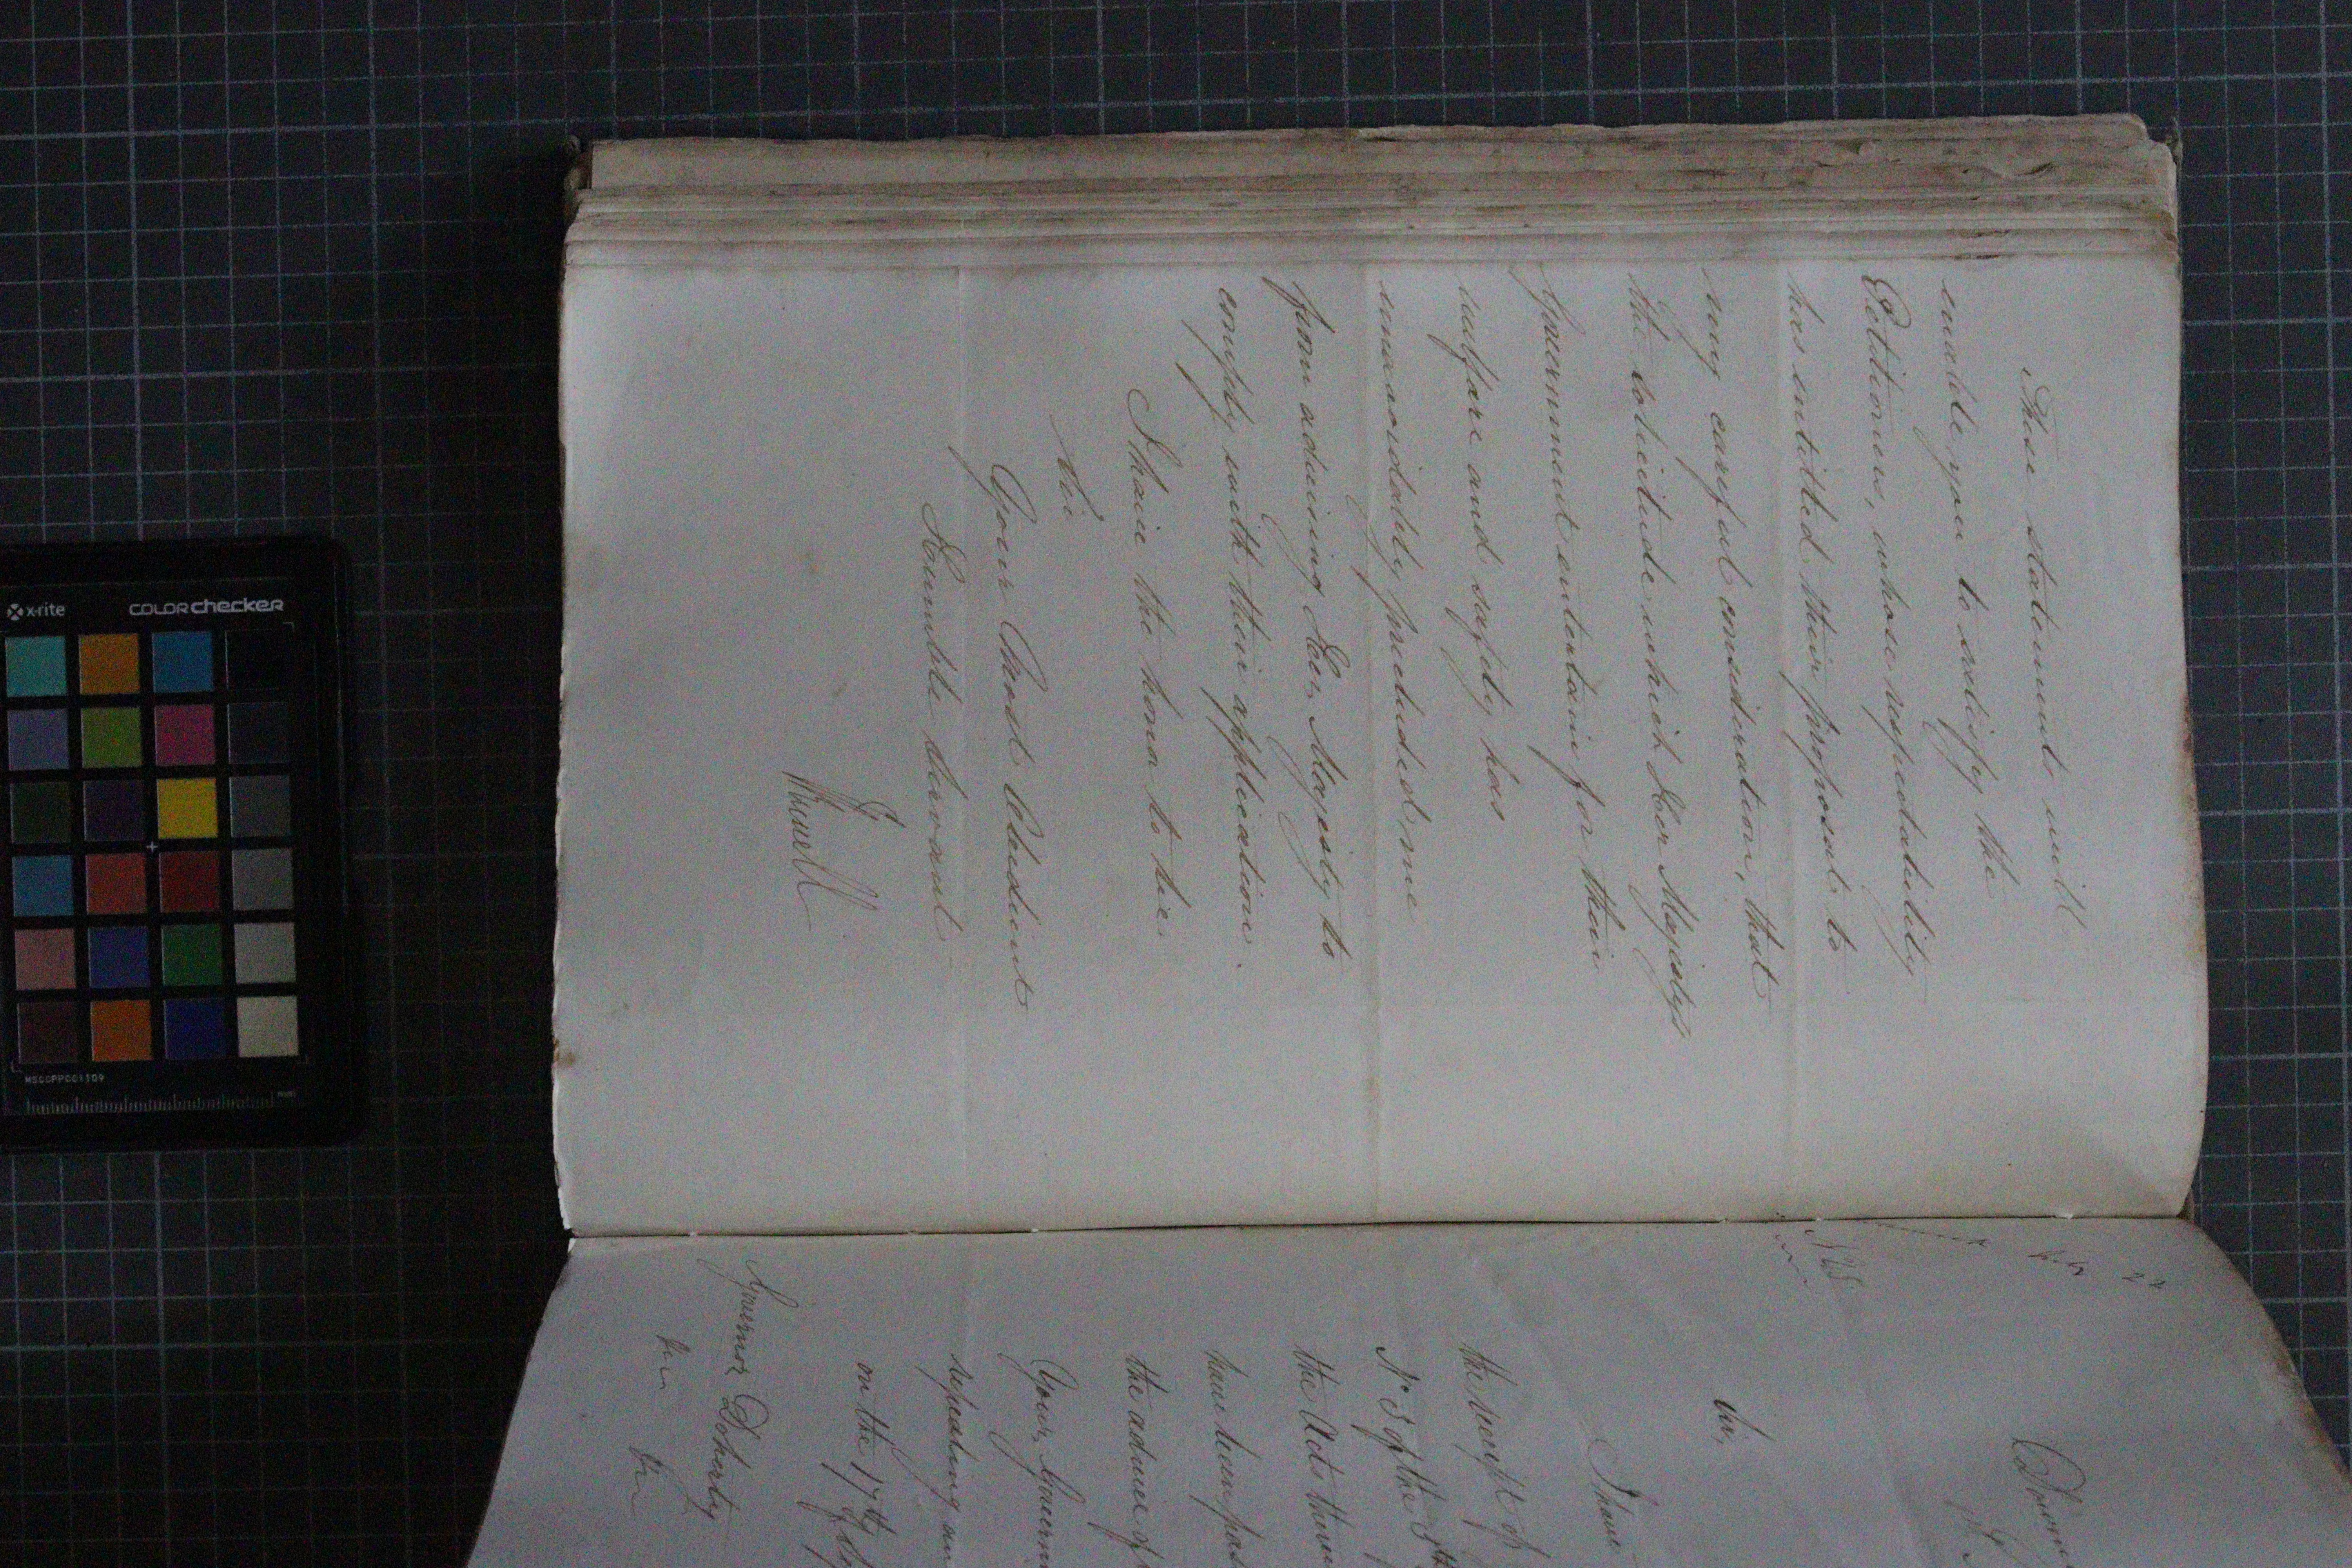 These statements will
enable you to satisfy the
Petitioners, whose respectability
has entitled their proposal to
very careful consideration, that
the solicitude which Her Majesty's
Government entertain for their
welfare and safety has
unavoidably precluded me
from advising Her Majesty to
comply with their application.
I have the honor to be
Sir
Your Most Obedient
Humble Servant
JRussell
22
No 25
Downi
Sir,
I have
the receipt of
No 5 of the 5th
the Acts therein
have been pas
the advice of
Your Governm
requesting an
on the 17th of
Governor Doherty
x-rite
COLORchecker
MSCCPPCC1109